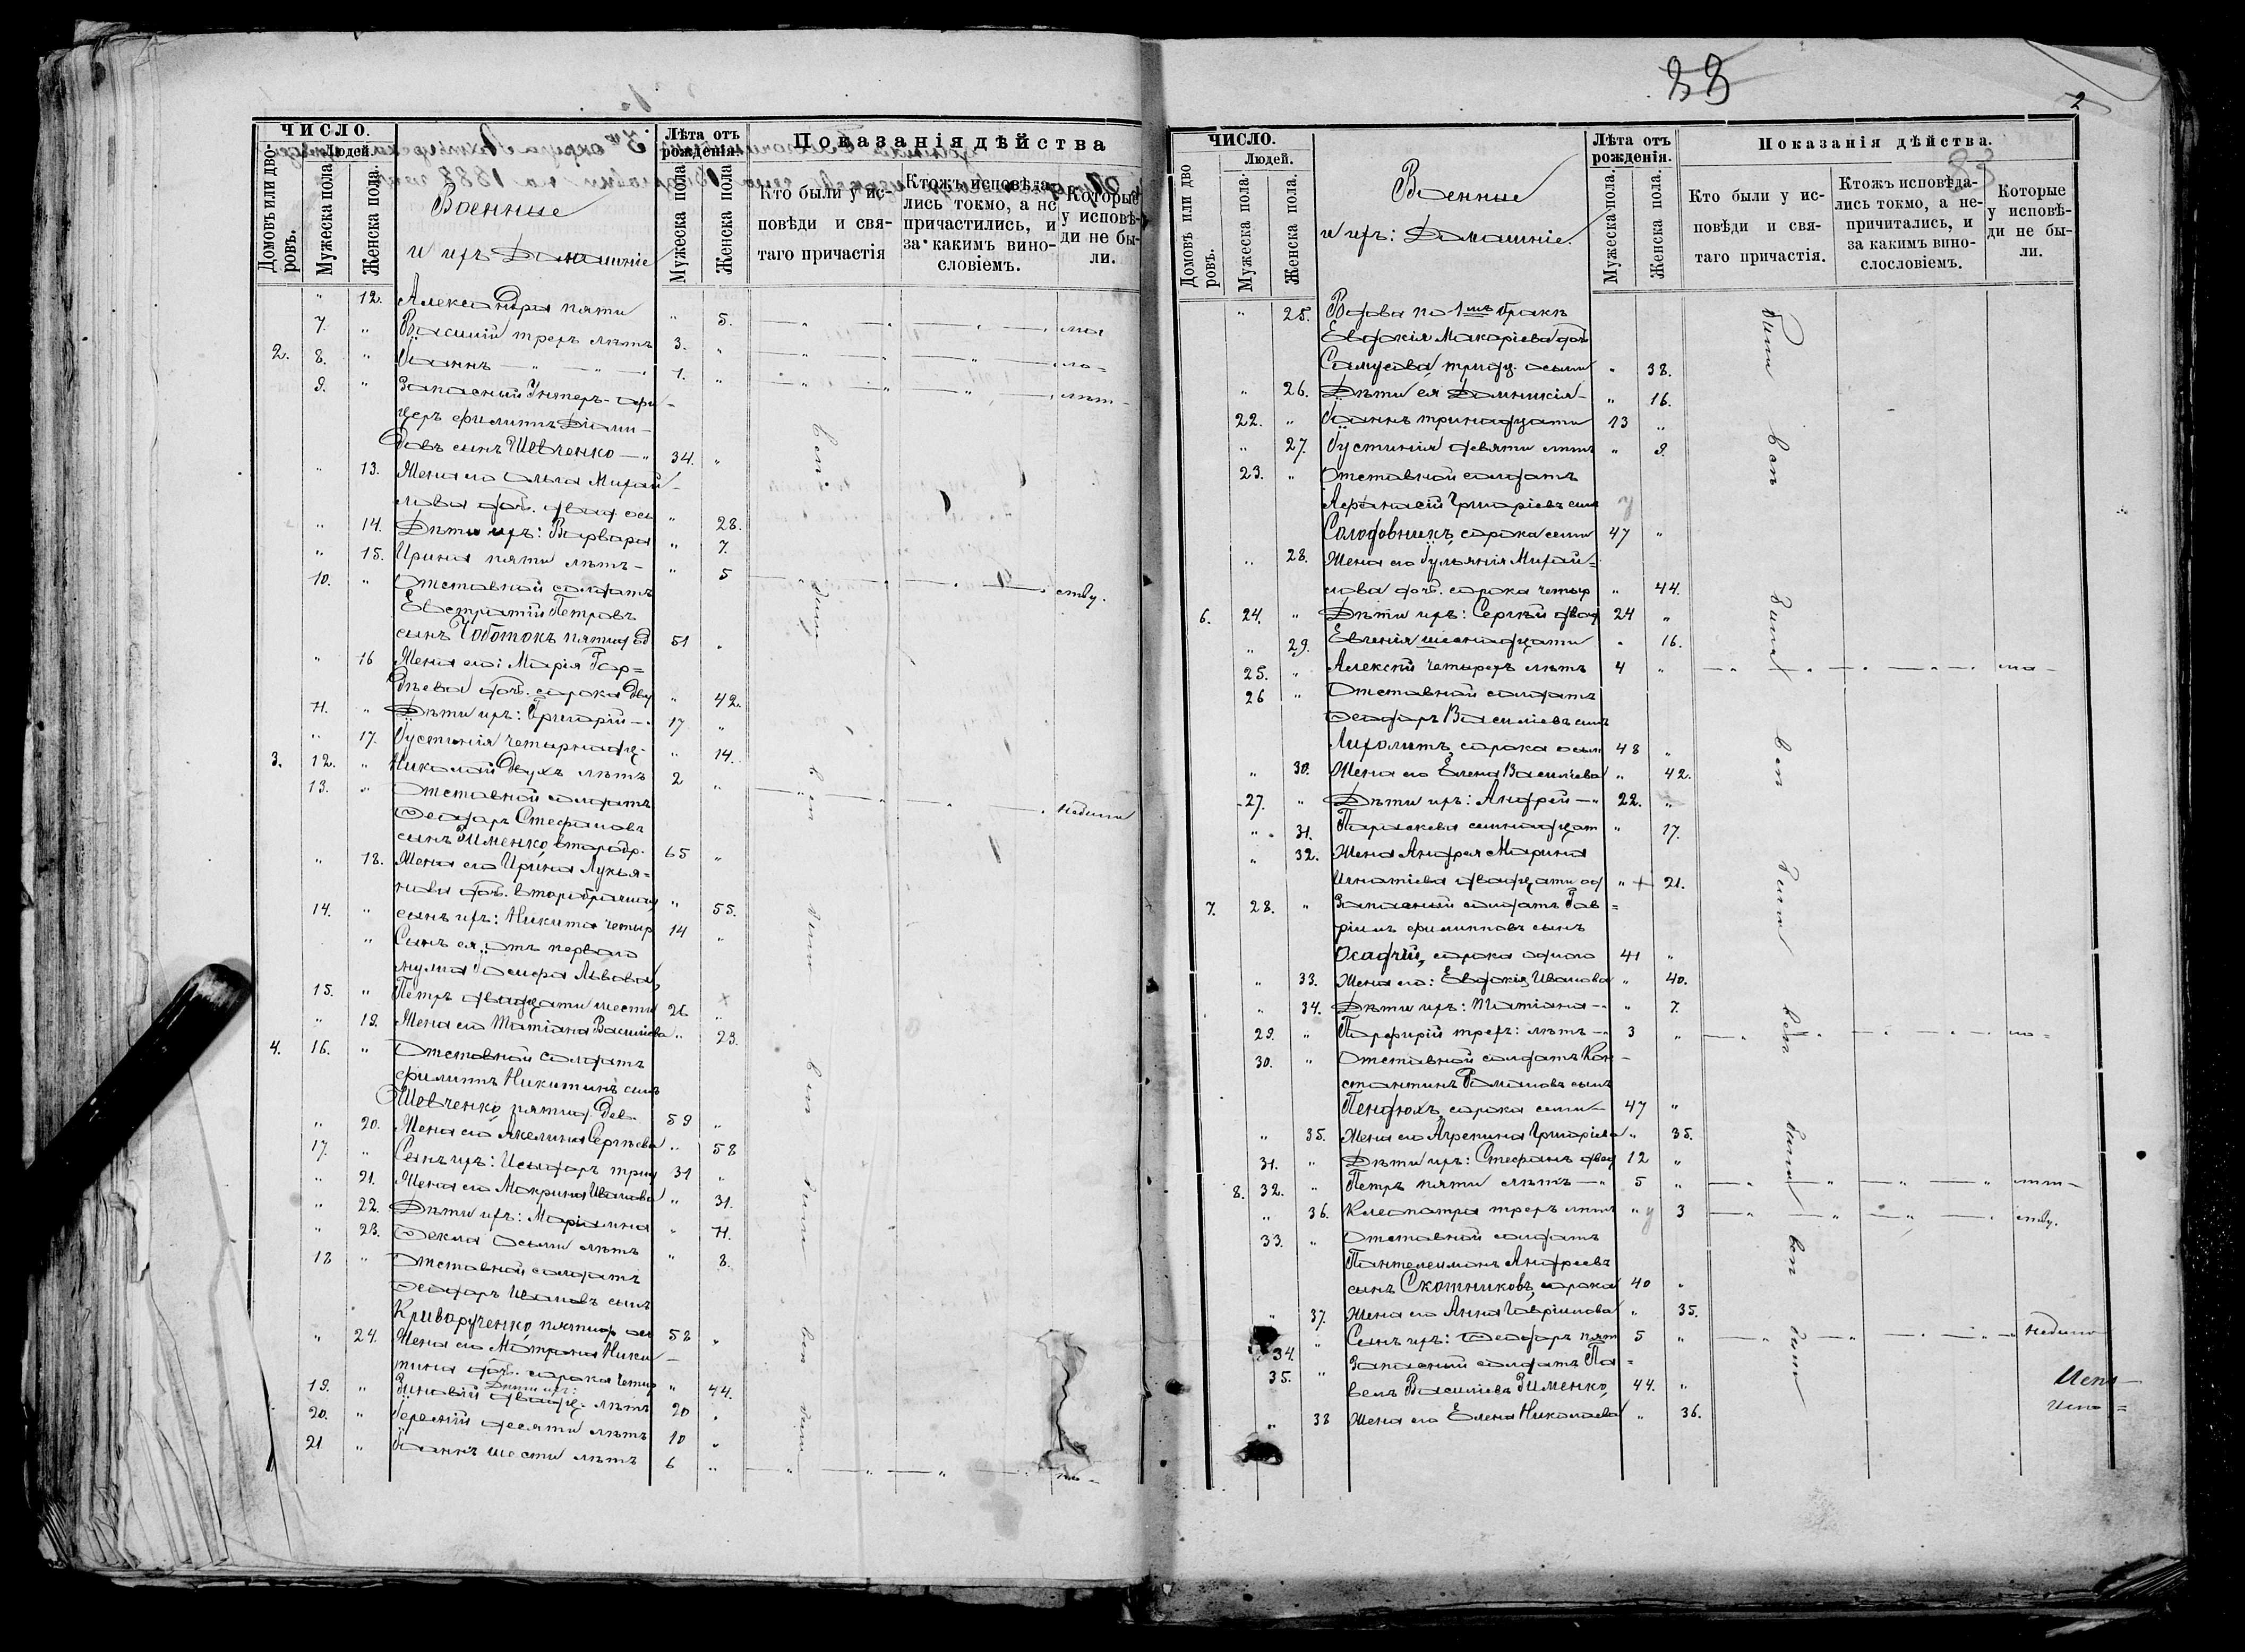 ЧИСЛО.
Людей.
Домовъ или дворовъ.
Мужеска пола.
Женска пола.
Военные
и ихъ Домашніе
Лѣта отъ рожденія.
Мужеска пола
Женска пола
Показанія дѣйства
Кто были у исповѣди и святаго причастія
Ктожъ исповѣдались токмо, а не причастились, и за какимъ винословіемъ.
Которые у исповѣди не были.
" 12. Александра пяти " 5.
7. " Василій трехъ лѣтъ 3. " мал
2. 8. " Іоаннъ — " — " 1. " ло-
9. " Запасный Унтеръ-офи- лѣт-
церъ Филиппъ Діами-
довъ сынъ Шевченко — " 34. "
" 13. Жена его Ольга Михай-
лова доч. двад. ось " 28.
" 14. Дѣти ихъ: Варвара " 7.
" 15. Ирина пяти лѣтъ- " 5 ству.
10. " Отставной солдатъ
Евстратій Петровъ
сынъ Чоботокъ пятид. од 51 "
" 16 Жена его: Марія Гор=
дѣева доч. сорока дву " 42.
11. " Дѣти ихъ: Григорій — 17 "
" 17. Іустинія четырнадц- " 14.
3. 12. " Николай двухъ лѣтъ 2 "
13. " Отставной солдатъ
Ѳеодоръ Стефановъ
сынъ Зименко, второбр. 65 "
" 18. Жена его Ирина Лукья=
нова доч. второбрачная " 55.
14. " Сынъ ихъ: Никита четыр 14 "
" Сынъ ея отъ перваго
мужа Іосифа Львова,
15. " Петръ двадцати шести 26 "
" 19. Жена его Татіана Василіева " 23.
4. 16. " Отставной солдатъ
Филиппъ Никитинъ сынъ
Шевченко, пятид. дев. 59 "
" 20. Жена его Акелина Сергѣева " 58
17. " Сынъ ихъ: Исидоръ трид 31 "
" 21. Жена его Макрина Иванова " 31.
" 22. Дѣти ихъ: Маріамна " 11.
" 23. Ѳекла осьми лѣтъ " 8.
18 " Отставной солдатъ
Ѳеодоръ Ивановъ сынъ
Криворученко, пятид ос 58 "
" 24. Жена его Матрона Ники-
тина доч. сорока четыр " 44.
Дѣти ихъ:
19. " Зиновій двадц. лѣтъ 20 "
20. " Іеремій десяти лѣтъ 10 "
21 " Іоаннъ шести лѣтъ 6 "
88
2
83
ЧИСЛО.
Людей.
Домовъ или дворовъ.
Мужеска пола.
Женска пола.
Военные
и ихъ: Домашніе.
Лѣта отъ рожденія.
Мужеска пола.
Женска пола.
Показанія дѣйства.
Кто были у исповѣди и святаго причастія.
Ктожъ исповѣдались токмо, а непричитались, и за какимъ винослословіемъ.
Которые у исповѣди не были.
" 25. Вдова по 1мъ бракѣ
Евдокія Макаріева доч
Самусова, тридц. осьми " 38.
" 26. Дѣти ея Домникія- " 16.
22. " Іоаннъ тринадцати 13 "
" 27. Іустинія девяти лѣтъ " 9.
23. " Отставной солдатъ
Аѳанасій Григоріевъ сынъ
Солодовникъ, сорока семи 47 "
" 28. Жена его Іуліанія Михай=
лова доч. сорока четыр " 44.
6. 24. " Дѣти ихъ: Сергѣй двад 24 "
" 29. Евгенія шестнадцати " 16.
25. " Алексѣй четырехъ лѣтъ 4 " ма-
26 " Отставной солдатъ
Ѳеодоръ Василіевъ сынъ
Лихолитъ, сорока осьм 48 "
" 30. Жена его Елена Василіева " 42.
27. " Дѣти ихъ: Андрей — " 22. "
" 31. Параскева семнадцат " 17.
" 32. Жена Андрея Марина
Игнатіева двадцати од " 21.
7. 28. " Запасный солдатъ Гав=
ріилъ Филипповъ сынъ
Осадчій, сорока одного 41 "
" 33. Жена его: Евдокія Иванова " 40.
" 34. Дѣти ихъ: Татіана — " 7.
29. " Порфирій трехъ: лѣтъ — 3 " ло=
30. " Отставной солдатъ Кон-
стантинъ Романовъ сынъ
Пендюхъ, сорока семи — 47 "
" 35. Жена его Агрепина Григоріева " 35.
31. " Дѣти ихъ: Стефанъ двад 12 "
8. 32. " Петръ пяти лѣтъ — " 5 " лѣт-
" 36. Клеопатра трехъ лѣтъ " 3 ству.
33. " Отставной солдатъ
Пантелеимонъ Андреевъ
сынъ Скотниковъ, сорока 40 "
" 37. Жена его Анна Гавріилова " 35.
34. " Сынъ ихъ: Ѳеодоръ пят 5 "
35. " Запасный солдатъ Па=
велъ Василіевъ Зименко, 44. "
" 38 Жена его Елена Николаева " 36.